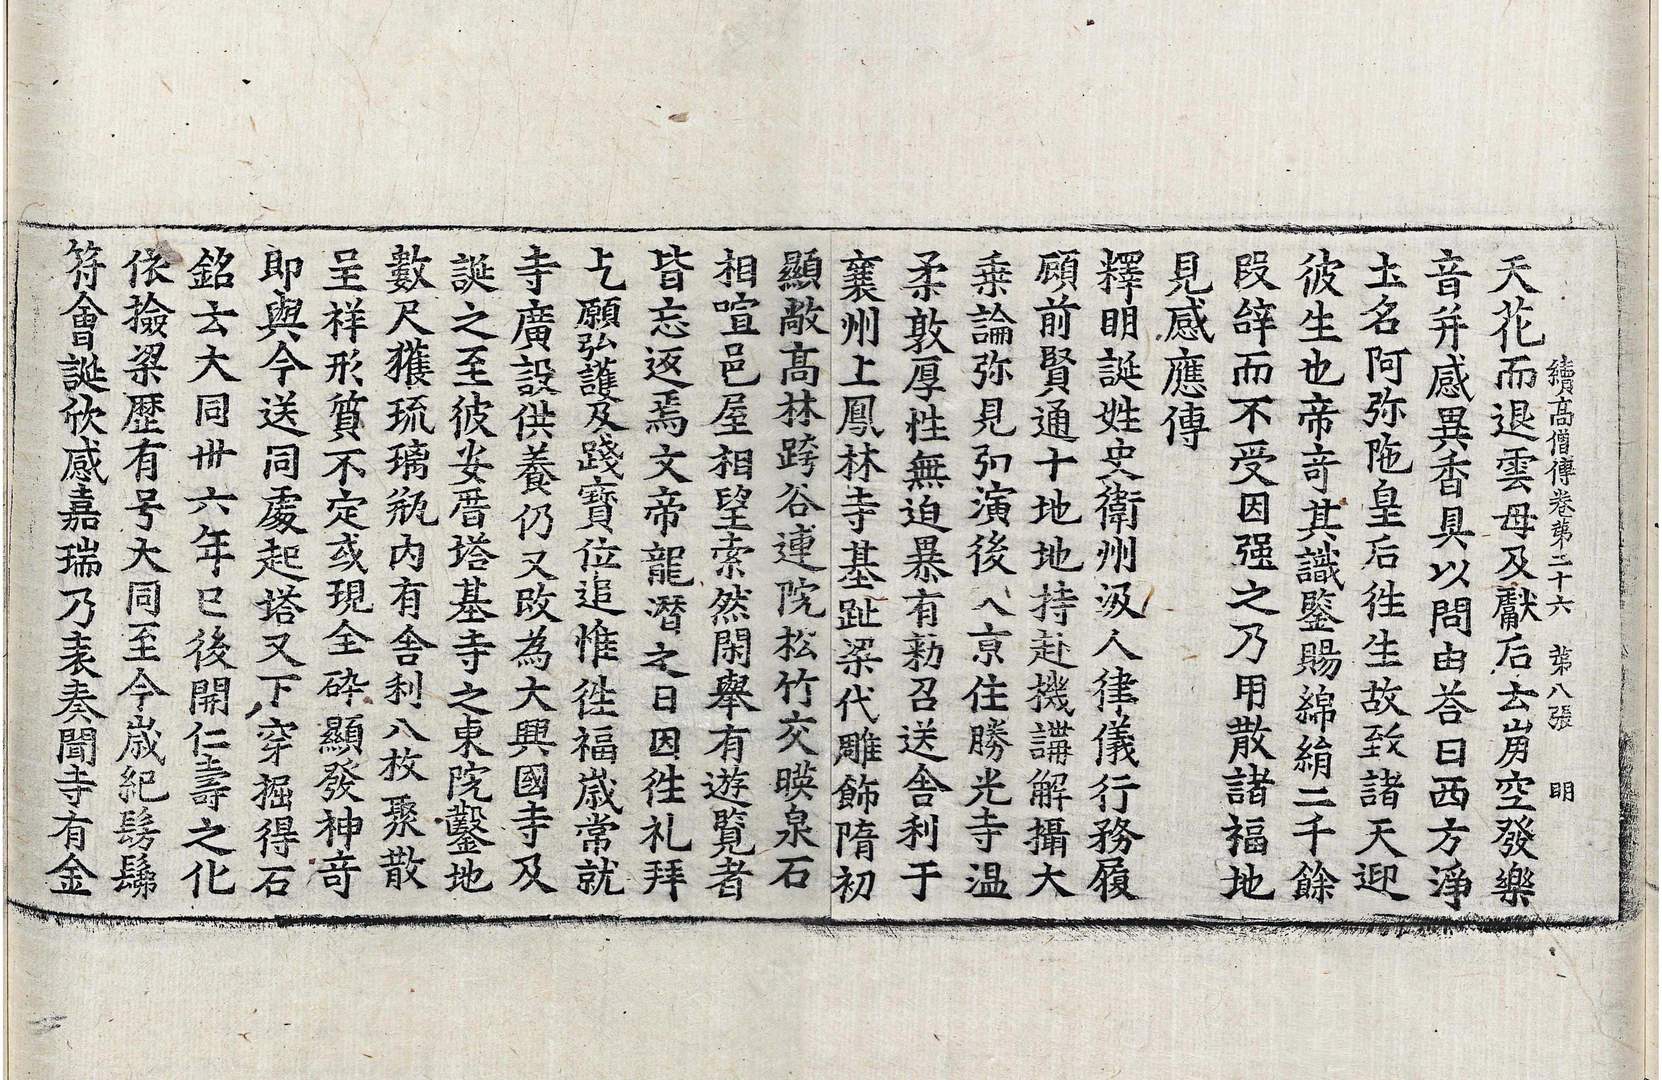 續高僧傳卷第二十六 第八張 明
天花而退雲母及獻后去㞦空發樂
音并感異香具以問由荅曰西方淨
土名阿弥陁皇后徃生故致諸天迎
彼生也帝竒其識鑒賜綿絹二千餘
段辝而不受因强之乃用散諸福地
見感應傳
釋明誕姓史衛州汲人律儀行務履
顧前賢通十地地持赴機講解攝大
乗論弥見弘演後入京住勝光寺温
柔敦厚性無迫暴有勑召送舎利于
襄州上鳳林寺基趾梁代雕飾隋初
顯敞髙林跨谷連院松竹交暎泉石
相喧邑屋相望索然閑舉有遊覽者
皆忘返焉文帝龍潛之日因徃礼拜
乞願弘護及踐寶位追惟徃福歳常就
寺廣設供養仍又改為大興國寺及
誕之至彼安厝塔基寺之東院鑿地
數尺獲琉璃瓶内有舎利八枚聚散
呈祥形質不定或現全碎顯發神竒
即與今送同處起塔又下穿掘得石
銘云大同卅六年已後開仁壽之化
依撿梁歷有号大同至今歳紀髣髴
符會誕欣感嘉瑞乃表奏聞寺有金